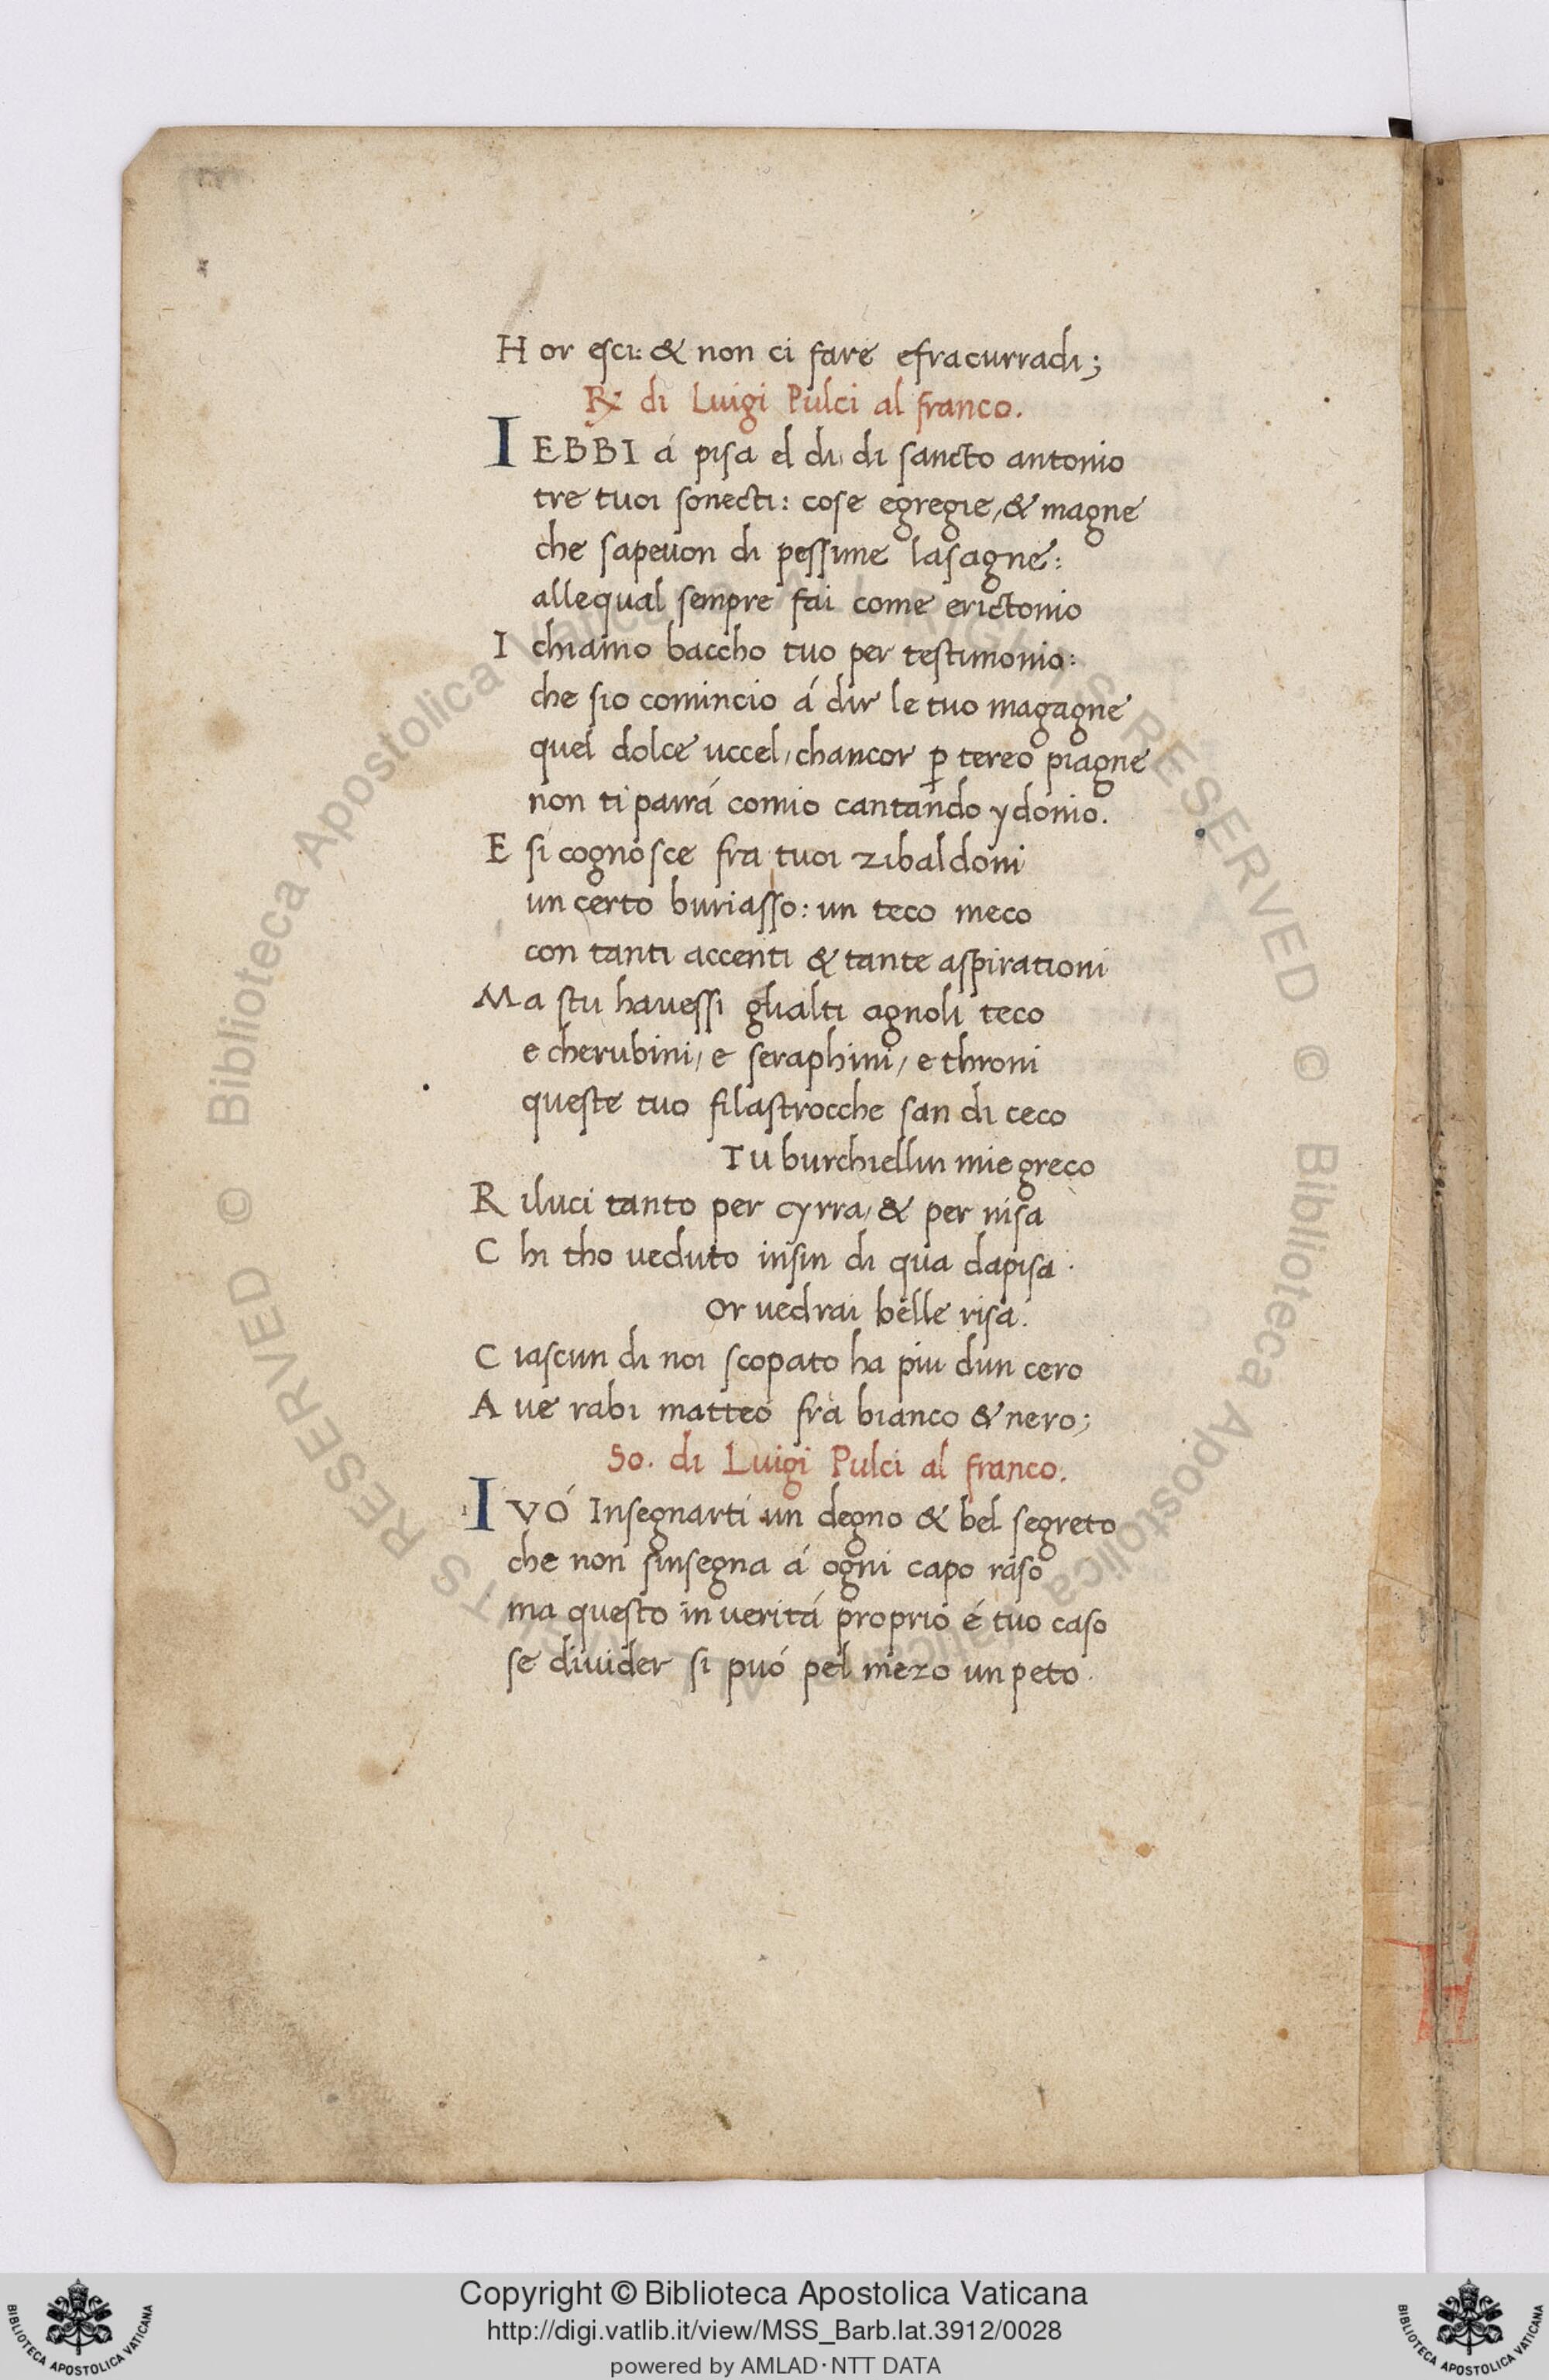 H or esci: & non ci fare efracurradi;
R di Luigi Pulci al franco.
I EBBI á pisa el di di sancto antonio
tre tuoi sonecti: cose egregie, & magne
che sapeuon di pessime lasagne:
allequal sempre fai come erictonio
I chiamo baccho tuo per testimonio:
che sio comincio á dir le tuo magagne
quel dolce uccel, chancor ꝑ tereo piagne
non ti parrá comio cantando ydonio.
E si cognosce fra tuoi zibaldoni
un certo buriasso: un teco meco
con tanti accenti & tante aspirationi
Ma stu hauessi glialti agnoli teco
e cherubini, e seraphini, e throni
queste tuo filastrocche san di ceco
Tu burchiellin mie greco
R iluci tanto per cyrra, & per nisa
C hi tho ueduto insin di qua dapisa.
Or uedrai belle risa.
C iascun di noi scopato ha piu dun cero
A ue rabi matteo fra bianco & nero;
So. di Luigi Pulci al franco.
I VÓ Insegnarti un degno & bel segreto
che non sinsegna á ogni capo raso
ma questo in ueritá proprio é tuo caso
se diuider si puó pel mezo un peto.
Copyright © Biblioteca Apostolica Vaticana
http://digi.vatlib.it/view/MSS_Barb.lat.3912/0028
powered by AMLAD·NTT DATA